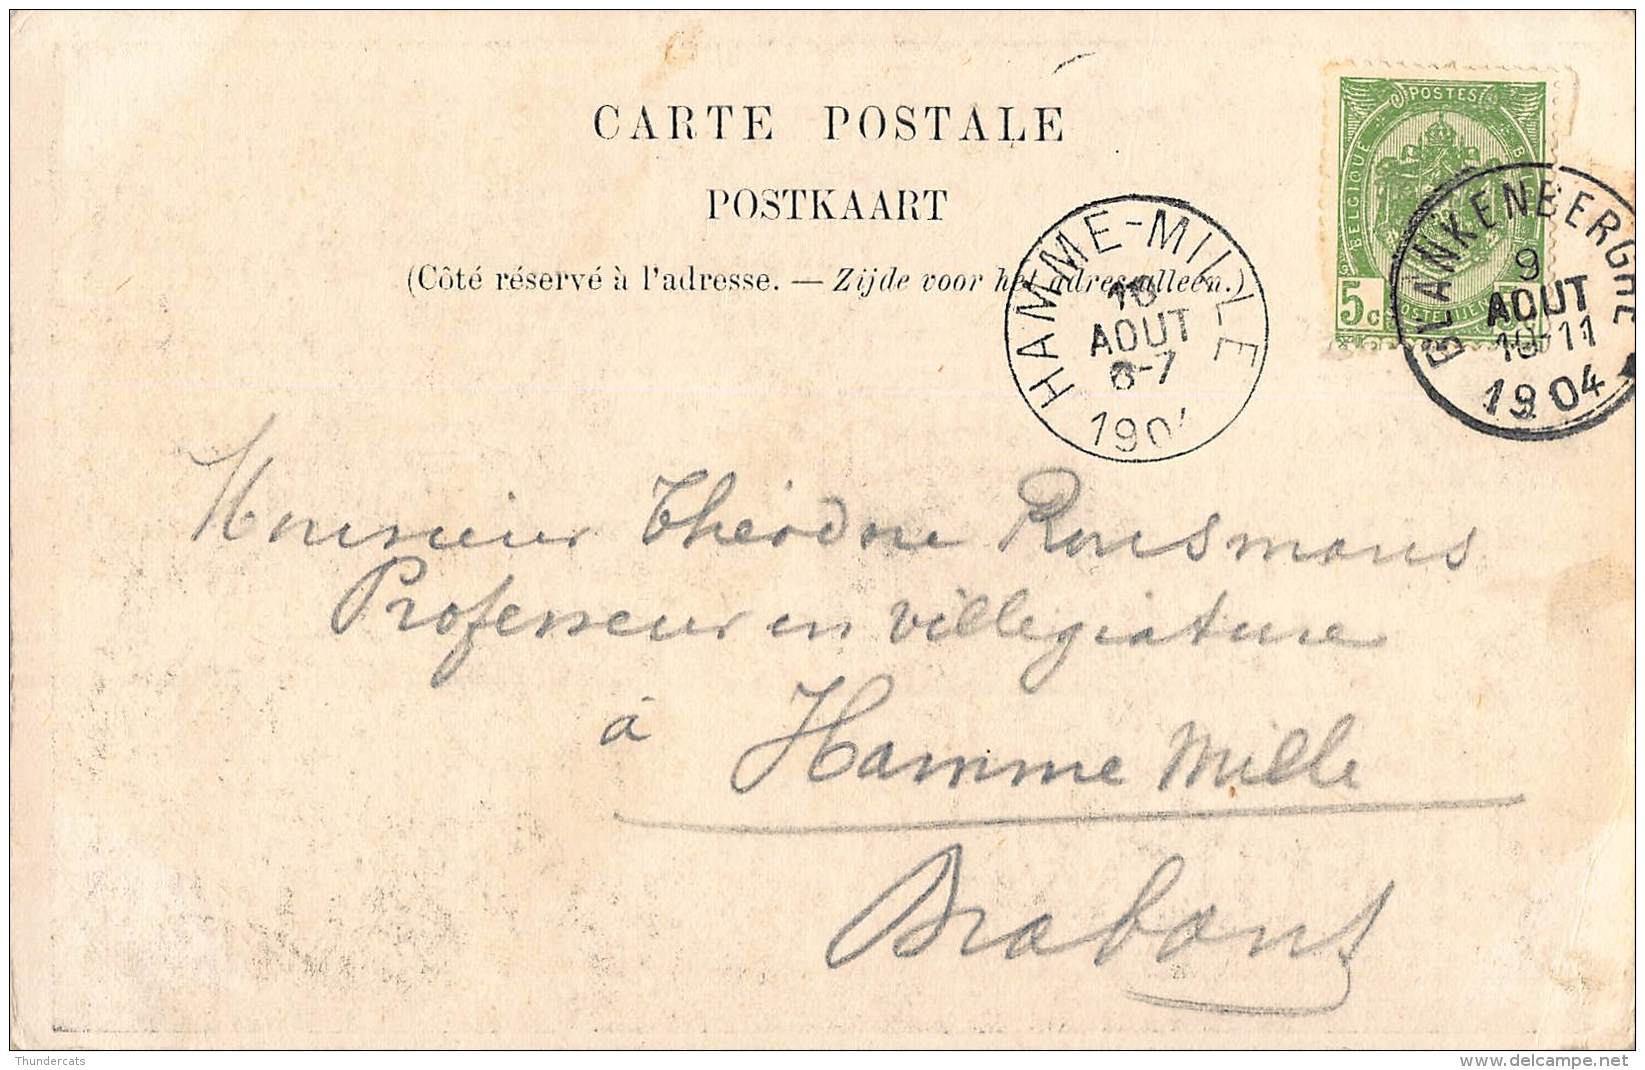 CARTE POSTALE
POSTKAART
(Côté réservé à l'adresse. — Zijde voor het adres alleen.)
POSTES
BELGIQUE
5c
HAMME-MILLE
10
AOUT
6-7
1904
BLANKENBERGHE
9
AOUT
10-11
1904
Monsieur Théodore Ronsmans
Professeur en villégiature
à Hamme Mille
Brabant
Thundercats
delcampe.net